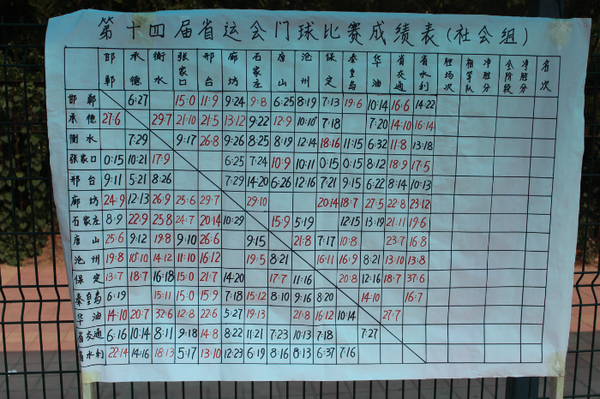 第十四届省运会门球比赛成绩表(社会组)
邯郸 承德 衡水 张家口 邢台 廊坊 石家庄 唐山 沧州 保定 秦皇岛 华油 省交通 省水利 胜场次 相等队 全阶段 净胜分 名次
邯郸 6:27 15:0 11:9 9:24 9:8 6:25 8:19 7:13 19:6 10:14 16:6 14:22
承德 27:6 29:7 21:10 21:5 13:12 9:22 12:9 10:10 7:18 7:20 14:10 16:14
衡水 7:29 9:17 26:8 9:26 8:25 8:19 12:14 18:16 11:15 6:32 11:8 13:18
张家口 0:15 10:21 17:9 6:25 7:24 10:9 0:11 0:15 0:15 8:12 18:9 17:5
邢台 9:11 5:21 8:26 7:29 14:20 6:26 12:16 7:21 9:15 6:22 8:14 10:13
廊坊 24:9 12:13 26:9 25:6 29:7 29:10 20:14 18:7 27:5 22:8 23:12
石家庄 8:9 22:9 25:8 24:7 20:14 10:29 15:9 5:19 12:15 13:19 21:11 19:6
唐山 25:6 9:12 19:8 9:10 26:6 9:15 21:8 7:17 10:8 23:7 16:8
沧州 19:8 10:10 14:12 11:10 16:12 19:5 8:21 16:11 16:9 8:21 13:10 13:8
保定 13:7 18:7 16:18 15:0 21:7 14:20 17:7 11:16 20:8 12:16 18:7 37:6
秦皇岛 6:19 15:11 15:0 15:9 7:18 15:12 8:10 9:16 8:20 14:10 16:7
华油 14:10 20:7 32:6 12:8 22:6 5:27 19:13 21:8 16:12 10:14 27:7
省交通 6:16 10:14 8:11 9:18 14:8 8:22 11:21 7:23 10:13 7:18 7:27
省水利 22:14 14:16 18:13 5:17 13:10 12:23 6:19 8:16 8:13 6:37 7:16